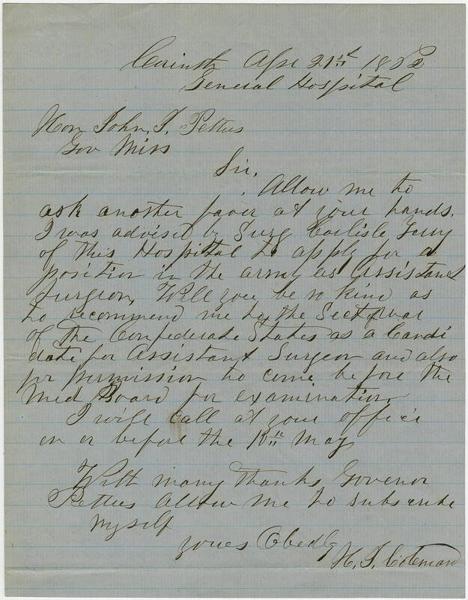 Corinth Apr 21st 1862
General Hospital
Hon John J. Pettus
Gov Miss
Sir,
Allow me to
ask another favor at your hands.
I was advised by Surg Carlisle Terry
of this Hospital to apply for a
position in the army as Assistant
Surgeon, Will you be so kind as
to recommend me to the Sect of war
of the Confederate States as a Candi
date for Assistant Surgeon and also
for permission to come before the
Med Board for examination
I will call at your office
on or before the 10th May
With many thanks Governor
Pettus allow me to subscribe
myself
yours Obedly
H. J. Coleman